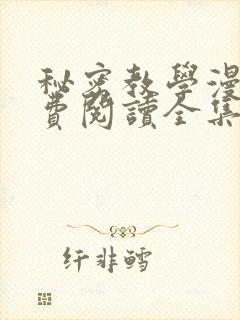 秘密教學漫
費閱讀全集
纤非鳕